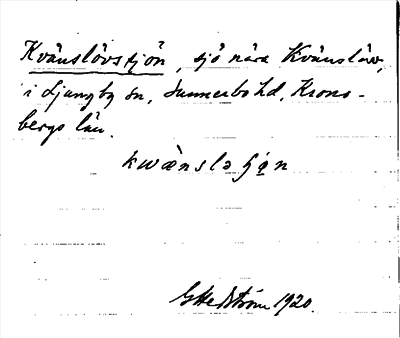 Kvänslövssjön, sjö nära Kvänslöv,
i Ljungby sn, Sunnerbo hd, Krono-
bergs län.
kwænslə
GHedström 1920.